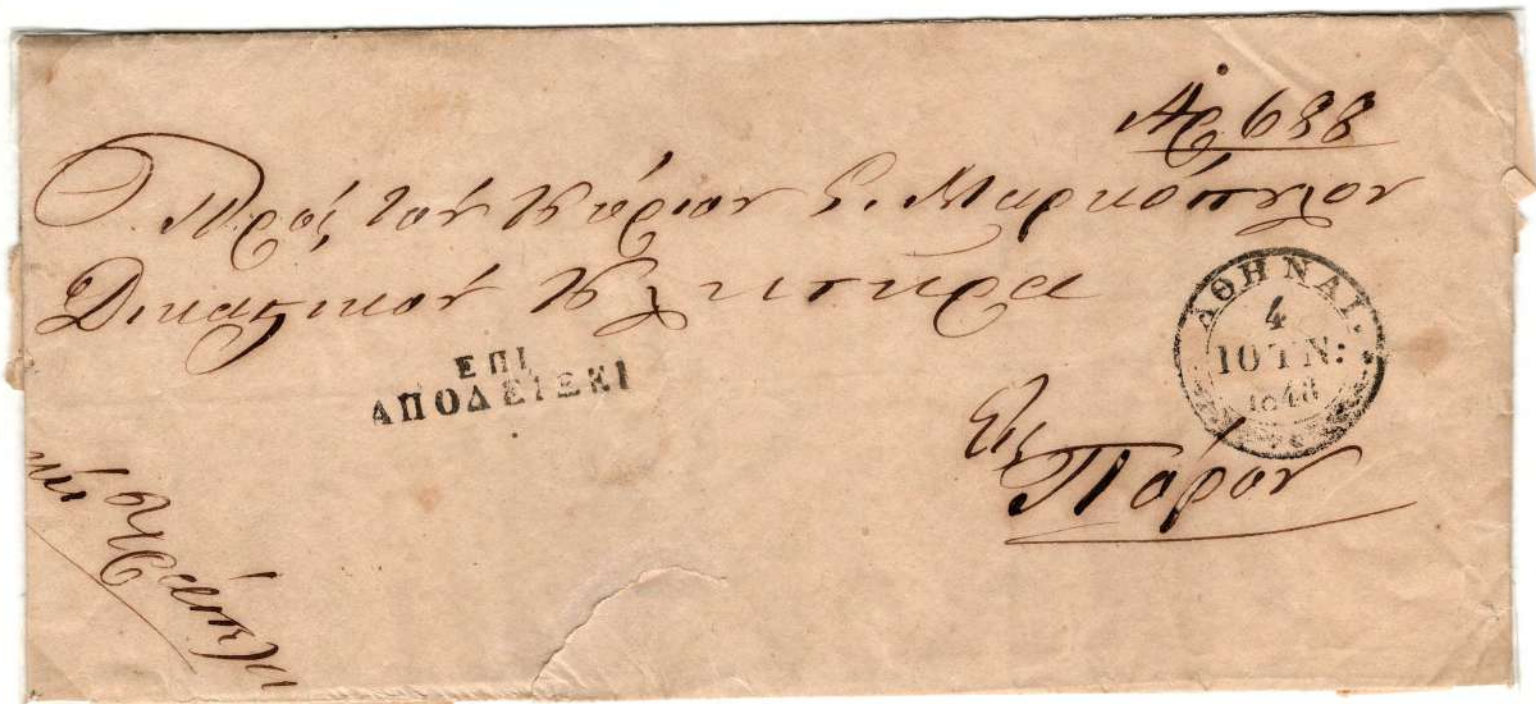 Αρ 688
Πρός τον Κύριον Σ. Μαρκόπουλον
Δικαστικόν Κλητήρα
ΕΠΙ
ΑΠΟΔΕΙΞΕΙ
ΑΘΗΝΑΙ.
4
ΙΟΥΝ:
1848
Εις
Πόρον